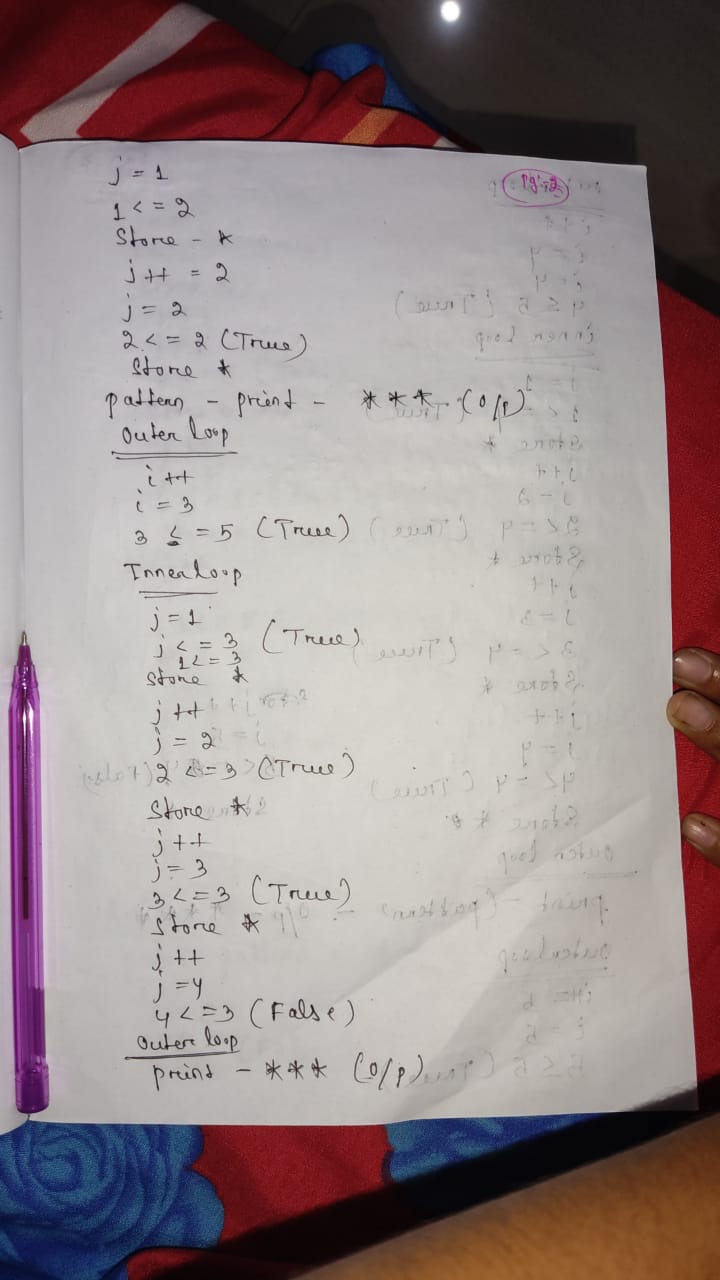 Pg-2
j = 1
1 < = 2
Store - *
j++ = 2
j = 2
2 < = 2 (True)
Store *
pattern - print - *** (O/P)
Outer loop
i++
i = 3
3 <= = 5 (True)
Inner loop
j = 1
j < = 3 (True)
1 <= 3
Store *
j++
j = 2
2 <= 3 (True)
Store *
j++
j = 3
3 <= 3 (True)
Store *
j++
j = 4
4 <= 3 (False)
Outer loop
print - *** (O/P)